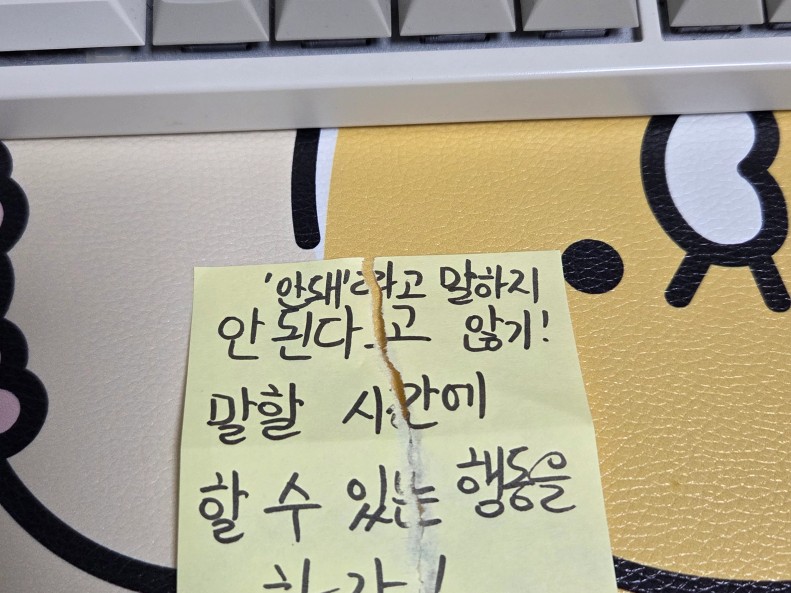 '안돼'라고 말하지
안된다고 않기!
말할 시간에
할 수 있는 행동을
하자!